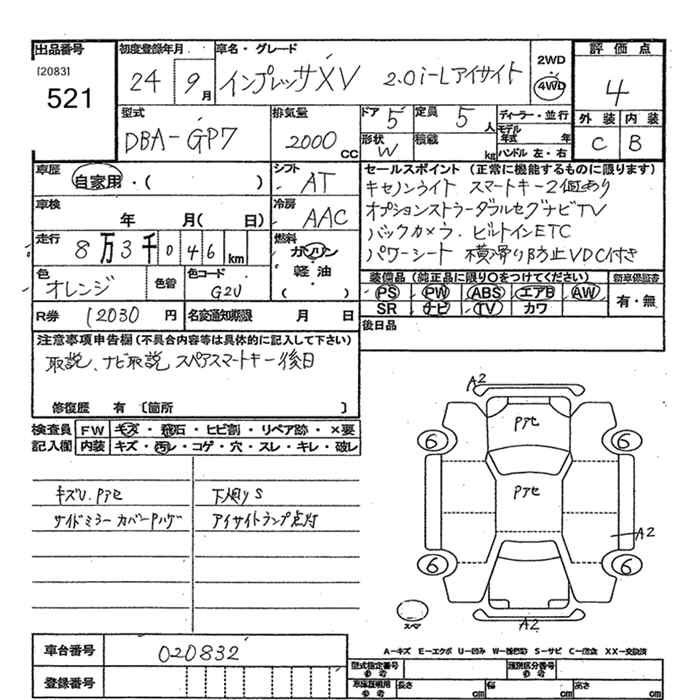 出品番号 初度登録年月 車名・グレード 2WD 評価点
[2083] 24 9月 インプレッサXV 2.0i-Lアイサイト 4WD 4
521
型式 排気量 ドア 5 定員 5人 ディーラー・並行 外装 内装
DBA-GP7 2000 CC 形状 W 積載 kg モデル年式 年 C B
ハンドル 左・右
車歴 自家用・( ) シフト AT セールスポイント (正常に機能するものに限ります)
キセノンライト スマートキー2個あり
車検 年 月( 日) 冷房 AAC オプションストラーダフルセグナビTV
バックカメラ. ビルトインETC
走行 8万3千046km 燃料 ガソリン パワーシート 横滑り防止VDC付き
軽油
( )
色 オレンジ 色替 色コード G2U 装備品 (純正品に限り○をつけてください) 新車保証書
PS PW ABS エアB AW 有・無
R券 12030円 名変通知期限 月 日 SR ナビ TV カワ
後日品
注意事項申告欄 (不具合内容等は具体的に記入して下さい)
取説、ナビ取説 スペアスマートキー後日
修復歴 有 〔箇所 〕
検査員 FW キズ・飛石・ヒビ割・リペア跡・×要
記入欄 内装 キズ・汚レ・コゲ・穴・スレ・キレ・破レ
キズU.Pアセ 下廻りS
サイドミラーカバーPハゲ アイサイトランプ点灯
A2
Pアセ
6 6
Pアセ
A2
6 6
スペア A2
A-キズ E-エクボ U-凹み W-補修跡 S-サビ C-腐食 XX-交換済
車台番号 020832 型式指定番号 参考 類別区分番号 参考
登録番号 車庫証明用 参考 長さ cm 幅 cm 高さ cm